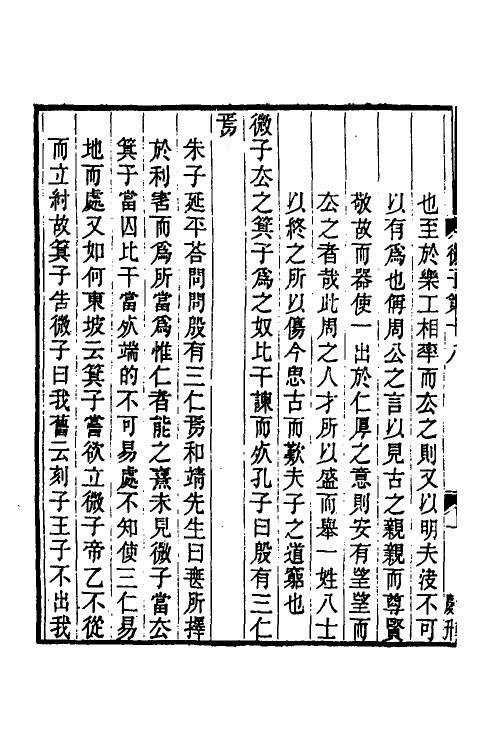 微子第十八
也至於樂工相率而厺之則又以明夫後不可
以有爲也偁周公之言以見古之親親而尊賢
敬故而器使一出於仁厚之意則安有望望而
厺之者哉此周之人才所以盛而舉一姓八士
以終之所以傷今思古而歎夫子之道窮也
微子厺之箕子爲之奴比干諫而𣦸孔子曰殷有三仁
焉
朱子延平荅問問殷有三仁焉和靖先生曰無所擇
於利害而爲所當爲惟仁者能之熹未見微子當厺
箕子當囚比干當𣦸端的不可易處不知使三仁易
地而處又如何東坡云箕子嘗欲立微子帝乙不從
而立紂故箕子告微子曰我舊云刻子王子不出我